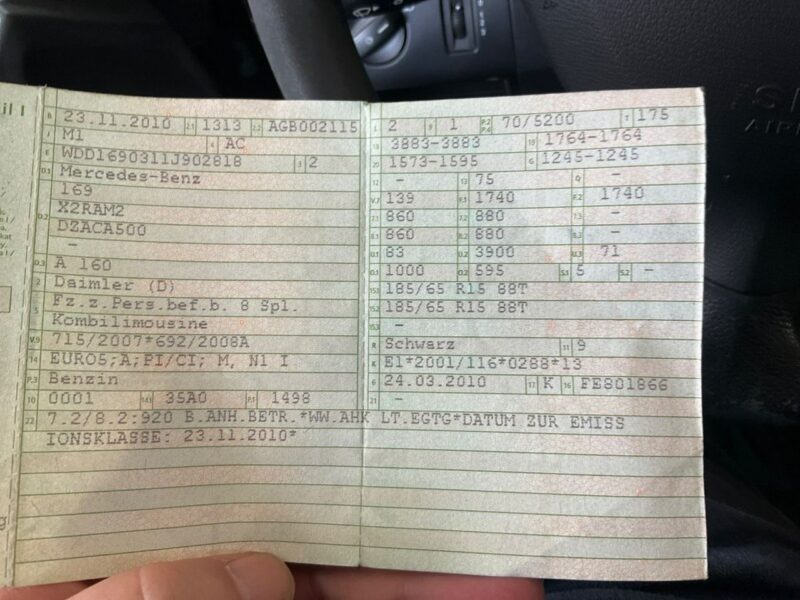 il I
B 23.11.2010 2.1 1313 2.2 AGB002115
J M1 4 AC
E WDD1690311J902818 3 2
D.1 Mercedes-Benz
169
D.2 X2RAM2
DZACA500
–
D.3 A 160
2 Daimler (D)
5 Fz.z.Pers.bef.b. 8 Spl.
Kombilimousine
V.9 715/2007*692/2008A
14 EURO5;A;PI/CI; M, N1 I
P.3 Benzin
10 0001 14.1 35A0 P.1 1498
L 2 9 1 P.2 P.4 70/5200 T 175
18 3883-3883 19 1764-1764
20 1573-1595 G 1245-1245
12 – 13 75 Q –
V.7 139 F.1 1740 F.2 1740
7.1 860 7.2 880 7.3 –
8.1 860 8.2 880 8.3 –
U.1 83 U.2 3900 U.3 71
O.1 1000 O.2 595 S.1 5 S.2 –
15.1 185/65 R15 88T
15.2 185/65 R15 88T
15.3 –
R Schwarz 11 9
K E1*2001/116*0288*13
6 24.03.2010 17 K 16 FE801866
21 –
22 7.2/8.2:920 B.ANH.BETR.*WW.AHK LT.EGTG*DATUM ZUR EMISS
IONSKLASSE: 23.11.2010*